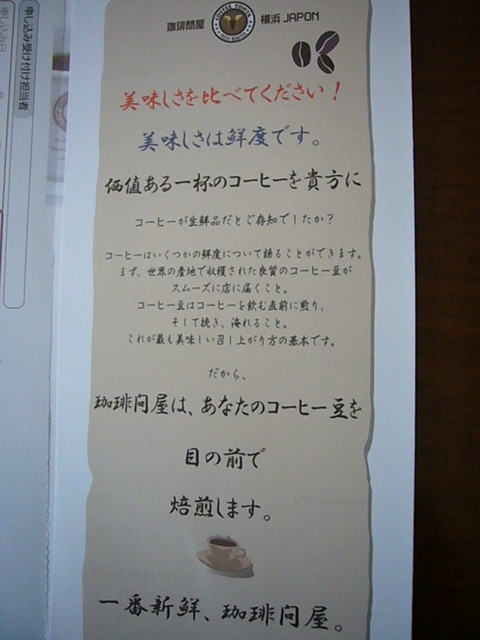 珈琲問屋 横浜 JAPON
美味しさを比べてください！
美味しさは鮮度です。
価値ある一杯のコーヒーを貴方に
コーヒーが生鮮品だとご存知でしたか？
コーヒーはいくつかの鮮度について語ることができます。
まず、世界の産地で収穫された良質のコーヒー豆が
スムーズに店に届くこと。
コーヒー豆はコーヒーを飲む直前に煎り、
そして挽き、淹れること。
これが最も美味しい召し上がり方の基本です。
だから、
珈琲問屋は、あなたのコーヒー豆を
目の前で
焙煎します。
一番新鮮、珈琲問屋。
申し込み受け付け担当者